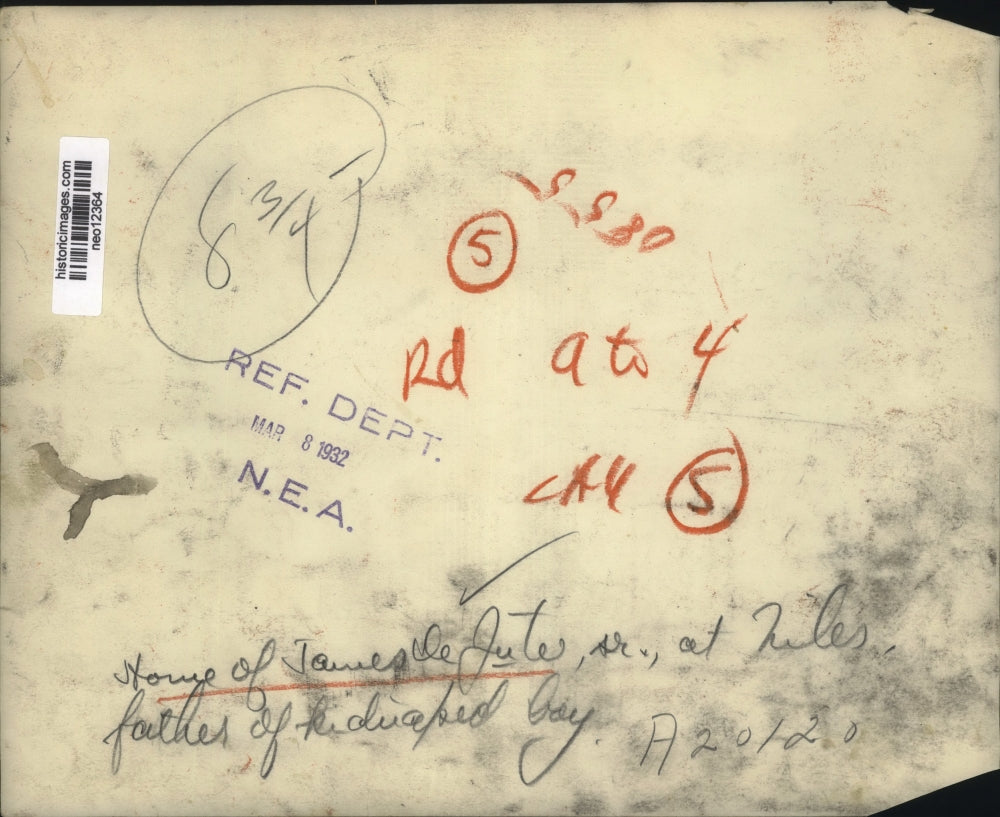 historicimages.com
neo12364
8 3/4
5
Rd a to 4
REF. DEPT.
MAR 8 1932
N.E.A.
5
Home of James De Jute, sr., at Niles,
father of kidnaped boy.
A20120